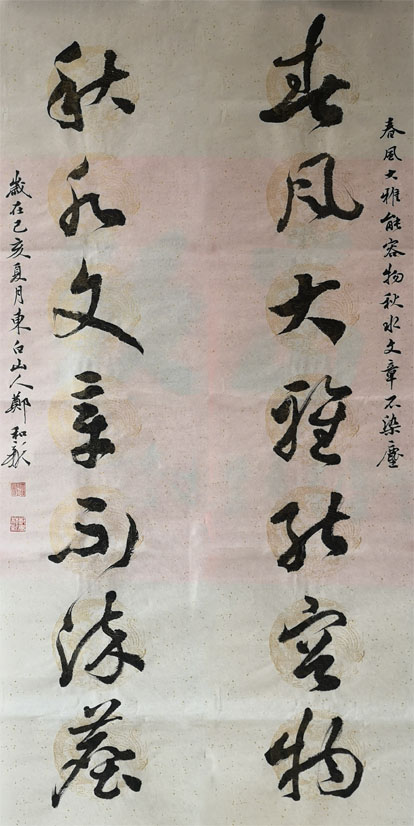 春风大雅能容物秋水文章不染塵
春风大雅能容物
秋水文章不染塵
歲在己亥夏月東白山人鄭和新